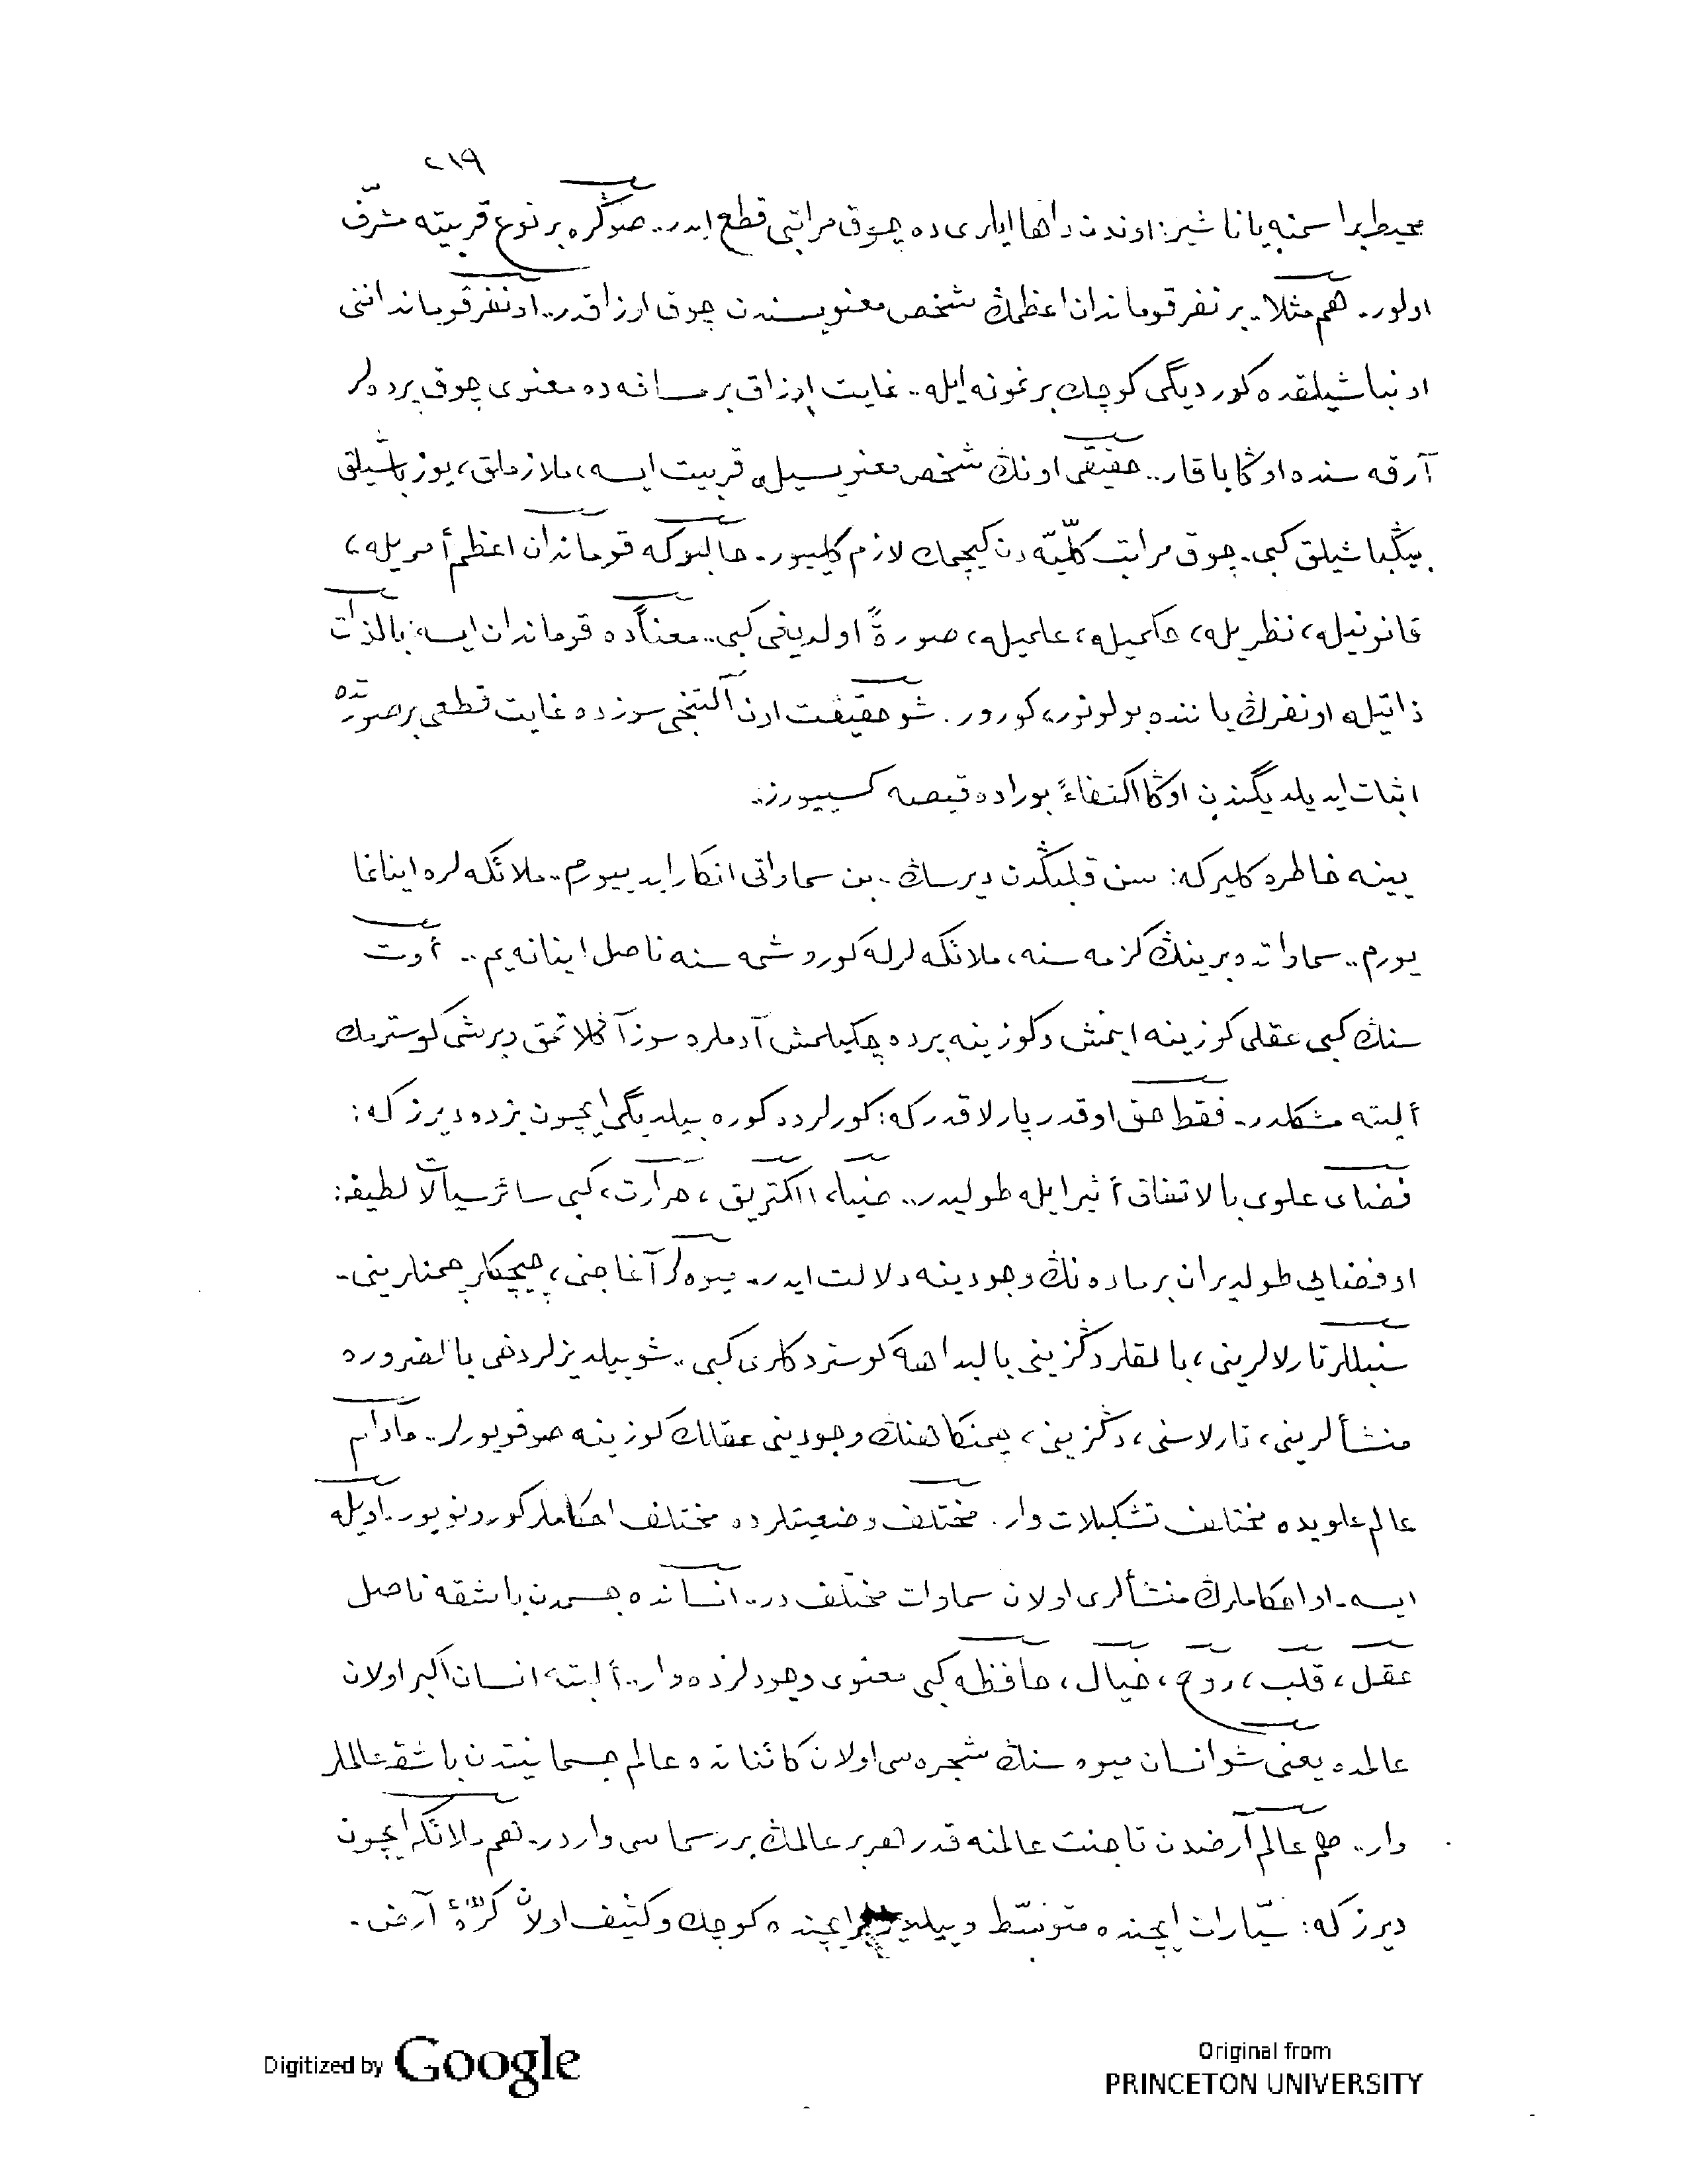 ٢١٩
محیط بر اسمنه یاناشیر: اوندن داها ایلری ده چوق مراتبی قطع ایدر.. صوڭره بر نوع قربیته مشرّف
اولور. هم مثلا.. بر نفر قوماندان اعظمڭ شخص معنویسندن چوق اوزاقدر.. او نفر قوماننداننی
اونباشیلقده كوردیگی كوچك بر نمونه ایله.. غایت اوزاق بر مسافه ده معنوی چوق پرده لر
آرقه سنده اوڭا باقار.. حقیقی اونڭ شخص معنویسیله قربیت ایسه، ملازملق، یوزباشیلق
بیڭباشیلق كبی. چوق مراتب كلّیّه دن كیچمك لازم كلییور. حالبوكه قوماندان اعظم أمریله،
قانونیله، نظریله، حكمیله، علمیله، صورةً اولدیغی كبی.. معناًده قوماندان ایسه: بالذات
ذاتیله او نفرڭ یاننده بولونور، كورور. شو حقیقت اون آلتنجی سوزده غایت قطعی بر صورتده
اثبات ایدیلدیگندن اوڭا اكتفاءً بوراده قیصه كسییورز..
یینه خاطره كلیركه: سن قلبڭدن دیرساڭ. بن سماواتی انكار ایدییورم.. ملائكه لره اینانما
یورم.. سماواتده برینڭ كزمه سنه، ملائكه لرله كوروشمه سنه ناصل اینانه یم.. أوت
سنڭ كبی عقلی كوزینه اینمش و كوزینه پرده چكیلمش آدملره سوز آڭلاتمق و برشی كوسترمك
ألبته مشكلدر. فقط حق اوقدر پارلاقدركه: كورلرده كوره بیلدیگی ایچون بزده دیرز كه:
فضای علوی بالاتفاق أثیر ایله طولیدر.. ضیا، الكتریق، حرارت، كبی سائر سیالات لطیفه:
او فضایی طولدیران بر ماده نڭ وجودینه دلالت ایدر. میوه لر آغاجنی، چیچكلر چمنلرینی.
سنبللر تارلالرینی، بالقلر دڭزینی بالبداهه كوستردكلری كبی.. شو ییلدیزلر دخی بالضروره
منشألرینی، تارلاسنی، دڭزینی، چمنكاهنڭ وجودینی عقلڭ كوزینه صوقویورلر.. مادام
عالم علویده مختلف تشكیلات وار. مختلف وضعیتلرده مختلف احكاملر كورونویور. اویله
ایسه. او احكاملرڭ منشألری اولان سماوات مختلف در.. انسانده جسمدن باشقه ناصل
عقل، قلب، روح، خیال، حافظه كبی معنوی وجودلرده وار.. ألبته انسان اكبر اولان
عالمده یعنی شو انسان میوه سنڭ شجره سی اولان كائناتده عالم جسمانیتدن باشقه عالملر
وار.. هم عالم أرضدن تا جنت عالمنه قدر هر بر عالمڭ بررسماسی واردر. هم ملائكه ایچون
دیرز كه: سیّارات ایچنده متوسّط و ییلدیزلر ایچنده كوچك و كثیف اولان كرّهٔ أرض.
Digitized by Google
Original from
PRINCETON UNIVERSITY